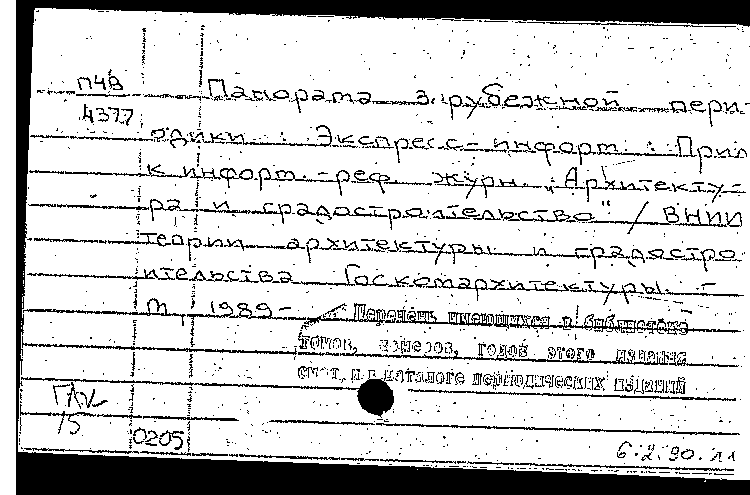 П4В
4377
Панорама зарубежной пери-
одики : Экспресс-информ. : Прил
к информ.-реф. журн. „Архитекту-
ра и градостроительство" / ВНИИ
теории архитектуры и градостро
ительства Госкомархитектуры. -
М., 1989-
Перечень имеющихся в библиотеке
томов, номеров, годов этого издания
смотри в каталоге периодических изданий
15
0205
6.2.90.